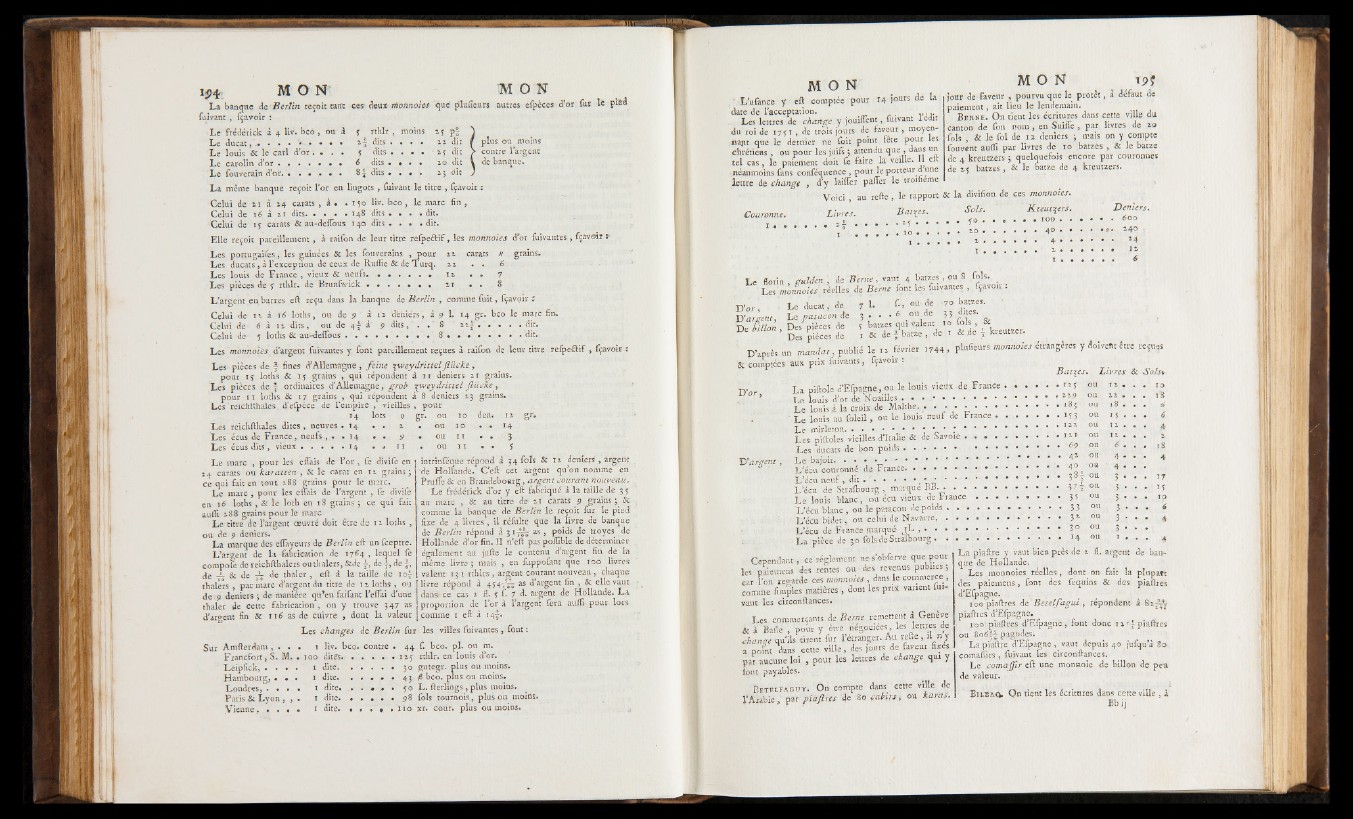 194 MON MON
La banque de Berlin reçoit tant ces deux monnoies que plusieurs autres espèces d'or sur le pied
suivant, sçavoir :
Le frédérick à 4 liv. bco, ou à 5 rthlr, moins 25 p
Le ducat, . . . . . . . . 2 3/4 dits . . . . 22 dit
Le louis & le carl d'or . . . . 5 dits . . . . 25 dit
Le carolin d'or . . . . . . . 6 dits . . . . 20 dit
Le souverain d'or. . . . . . . 8 1/2 dits . . . . 23 dit
plus ou moins
contre l'argent
de banque.
La même banque reçoit l'or en lingots, suivant le titre, sçavoir :
Celui de 21 à 24 carats, à . . 150 liv. bco, le marc fin,
Celui de 16 à 21 dits. . . . . 148 dits . . . . dit.
Celui de 15 carats & au-dessous 140 dits . . . . dit.
Elle reçoit pareillement, à raison de leur titre respectif, les monnoies d'or suivantes, sçavoir :
Les portugaises, les guinées & les souverains, pour 22 carats » grains.
Les ducats, à l'exception de ceux de Russie & de Turq. 22 . . 6
Les louis de France, vieux & neufs. . . . . . . 12 . . 7
Les pièces de 5 rthlr. de Brunswick . . . . . . . 21 . . 8
L'argent en barres est reçu dans la banque de Berlin, comme suit, sçavoir :
Celui de 12 à 16 loths, ou de 9 à 12 deniers, à 9 l. 14 gr. bco le marc fin.
Celui de 6 à 12 dits, ou de 4 1/2 à 9 dits, . . 8 22 1/2 . . . . . . dit.
Celui de 5 loths & au-dessous . . . . . . . . . 8 . . . . . . . . dit.
Les monnoies d'argent suivantes y sont pareillement reçues à raison de leur titre respectif, sçavoir :
Les pièces de 2/3 fines d'Allemagne, feine zweydrittel stücke,
pour 15 loths & 15 grains, qui répondent à 11 deniers 21 grains.
Les pièces de 2/3 ordinaires d'Allemagne, grob zweydrittel stücke,
pour 11 loths & 17 grains, qui répondent à 8 deniers 23 grains.
Les reichsthales d'espèce de l'empire, vieilles, pour
14 lots 9 gr. ou 10 den. 12 gr.
Les reichsthales dites, neuves . 14 . . 2 . ou 10 . . 14
Les écus de France, neufs, . . 14 . . 9 . ou 11 . . 3
Les écus dits, vieux . . . . . 14 . . 11 . ou 11 . . 5
Le marc, pour les essais de l'or, se divise en
24 carats ou karatten, & le carat en 12 grains;
ce qui fait en tout 288 grains pour le marc.
Le marc, pour les essais de l'argent, se divise
en 16 loths, & le loth en 18 grains; ce qui fait
aussi 288 grains pour le marc.
Le titre de l'argent œuvré doit être de 12 loths,
ou de 9 deniers.
La marque des essayeurs de Berlin est un sceptre.
L'argent de la fabrication de 1764, lequel se
compose de reichsthalers ou thalers, & de
de thaler, est à la taille de 10 1/2
thalers, par marc d'argent du titre de 12 loths, ou
de 9 deniers; de manière qu'en faisant l'essai d'une
thaler de cette fabrication, on y trouve 347 as
d'argent fin & 116 as de cuivre, dont la valeur
intrinsèque répond à 34 sols & 12 deniers, argent
de Hollande. C'est cet argent qu'on nomme en
Prusse & en Brandebourg, argent courant nouveau.
Le frédérick d'or y est fabriqué à la taille de 35
au marc, & au titre de 21 carats 9 grains; &
comme la banque de Berlin le reçoit sur le pied
fixe de 4 livres, il résulte que la livre de banque
de Berlin répond à 31 as, poids de troyes de
Hollande d'or fin. Il n'est pas possible de déterminer
également au juste le contenu d'argent fin de la
même livre; mais, en supposant que 100 livres
valent 131 rthlrs, argent courant nouveau, chaque
livre répond à 454 as d'argent fin, & elle vaut
dans ce cas 1 fl. 5 s. 7 d. argent de Hollande. La
proportion de l'or à l'argent sera aussi pour lors
comme 1 est à 14
Les changes de Berlin sur les villes suivantes, sont :
Sur Amsterdam, . . . 1 liv. bco. contre . 44 s. bco. pl. ou m.
Francfort, S. M. . 100 dites. . . . . . 125 rthlr. en louis d'or.
Leipsick, . . . . 1 dite. . . . . . 30 gutegr. plus ou moins.
Hambourg, . . . 1 dite. . . . . . 43 ß bco. plus ou moins.
Londres, . . . . 1 dite. . . . . . 50 L. sterlings, plus moins.
Paris & Lyon, . . 1 dite. . . . . . 98 sols tournois, plus ou moins.
Vienne, . . . . 1 dite. . . . . . 110 xr. cour. plus ou moins.
MON MON 195
L'usance y est comptée pour 14 jours de la
date de l'acceptation.
Les lettres de change y jouissent, suivant l'édit
du roi de 1751, de trois jours de faveur, moyen-
nant que le dernier ne soit point fête pour les
chrétiens, ou pour les juifs; attendu que, dans un
tel cas, le paiement doit se faire la veille. Il est
néanmoins sans conséquence, pour le porteur d'une
lettre de change, d'y laisser passer le troisième
jour de faveur, pourvu que le protêt, à défaut de
paiement, ait lieu le lendemain.
BERNE. On tient les écritures dans cette ville du
canton de son nom, en Suisse, par livres de 20
sols, & le sol de 12 deniers; mais on y compte
souvent aussi par livres de 10 batzes, & le batze
de 4 kreutzers; quelquefois encore par couronnes
de 25 batzes, & le batze de 4 kreutzers.
Voici, au reste, le rapport & la division de ces monnoies.
Couronne. Livres. Batzes. Sols. Kreutzers. Deniers.
1 . . . . . . 2 1/2 . . . . . 25 . . . . . 50 . . . . . . 100 . . . . . . 600
1 . . . . . 10 . . . . . 20 . . . . . . 40 . . . . . . 240
1 . . . . . 2 . . . . . . 4 . . . . . . 24
1 . . . . . . 2 . . . . . . 12
1 . . . . . . 6
Le florin, gulden, de Berne, vaut 4 batzes, ou 8 sols.
Les monnoies réelles de Berne sont les suivantes, sçavoir :
D'or, Le ducat, de 7 l. s., ou de 70 batzes.
D'argent, Le patacon de 3 . . . 6 ou de 33 dites.
De billon, Des pièces de 5 batzes qui valent 10 sols, &
Des pièces de 1 & de 1/2 batze, de 1 & de 1/2 kreutzer.
D'après un mandat, publié le 12 février 1744, plusieurs monnoies étrangères y doivent être reçues
& comptées aux prix suivants, sçavoir :
Batzes. Livres & Sols.
D'or, La pistole d'Espagne, ou le louis vieux de France . . . . . . 125 ou 12 . . . 10
Le louis d'or de Noailles . . . . . . 229 ou 22 . . . 18
Le louis à la croix de Malthe. . . . . . . 185 ou 18 . . .
Le louis au soleil, ou le louis neuf de France . . . . . . 153 ou 15 . . . 6
Le mirleton. . . . . . . 122 ou 12 . . . 4
Les pistoles vieilles d'Italie & de Savoie . . . . . . 121 ou 12 . . . 2
Les ducats de bon poids . . . . . . 69 ou 6 . . . 18
D'argent, Le bajoir. . . . . . . 42 ou 4 . . . 4
L'écu couronné de France. . . . . . . 40 ou 4 . . .
L'écu neuf, dit . . . . . . 38 1/2 ou 3 . . . 17
L'écu de Strasbourg, marqué BB. . . . . . . 37 1/2 ou 3 . . . 15
Le louis blanc, ou écu vieux de France . . . . . . 35 ou 3 . . . 10
L'écu blanc, ou le patacon de poids . . . . . . 33 ou 3 . . . 6
L'écu bidet, ou celui de Navarre, . . . . . . 32 ou 3 . . . 4
L'écu de France marqué . . . . . . 30 ou 3 . . .
La pièce de 30 sols de Strasbourg . . . . . . 14 ou 1 . . . 4
Cependant, ce réglement ne s'observe que pour
les paiemens des rentes ou des revenus publics;
car l'on regarde ces monnoies, dans le commerce,
comme simples matières, dont les prix varient sui-
vant les circonstances.
Les commerçants de Berne remettent à Genève
& à Basle, pour y être négociées, les lettres de
change qu'ils tirent sur l'étranger. Au reste, il n'y
a point dans cette ville, des jours de faveur fixés
par aucune loi, pour les lettres de change qui y
sont payables.
BETELFAGUY. On compte dans cette ville de
l'Arabie, par piastres de 80 cabirs, ou karats.
La piastre y vaut bien près de 2 fl. argent de ban-
que de Hollande.
Les monnoies réelles, dont on fait la plupart
des paiemens, sont des sequins & des piastres
d'Espagne.
100 piastres de Betelfagui, répondent à 82
piastres d'Espagne.
100 piastres d'Espagne, font donc 121 1/2 piastres
ou 806 pagodes.
La piastre d'Espagne, vaut depuis 40 jusqu'à 80
comassirs, suivant les circonstances.
Le comassir est une monnoie de billon de peu
de valeur.
BILBAO. On tient les écritures dans cette ville, à
Bb ij